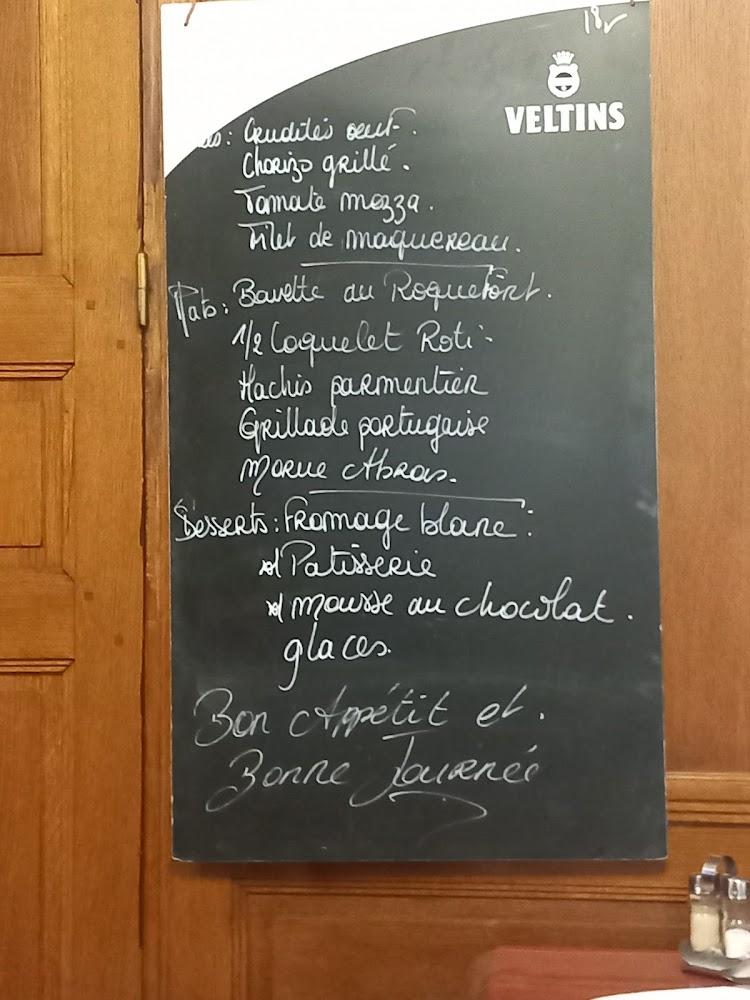 18
VELTINS
Crudités oeuf.
Chorizo grillé.
Tomate mozza.
Filet de maquereau.
Plats: Bavette au Roquefort.
1/2 Coquelet Roti
Hachis parmentier
Grillade portugaise
Morue Abras.
Desserts: Fromage blanc
Patisserie
mousse au chocolat.
glaces.
Bon Appétit et.
Bonne Journée